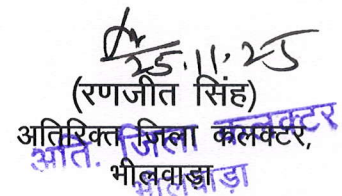 25.11.25
(रणजीत सिंह)
अतिरिक्त जिला कलक्टर,
अति. जिला कलक्टर
भीलवाड़ा
भीलवाड़ा